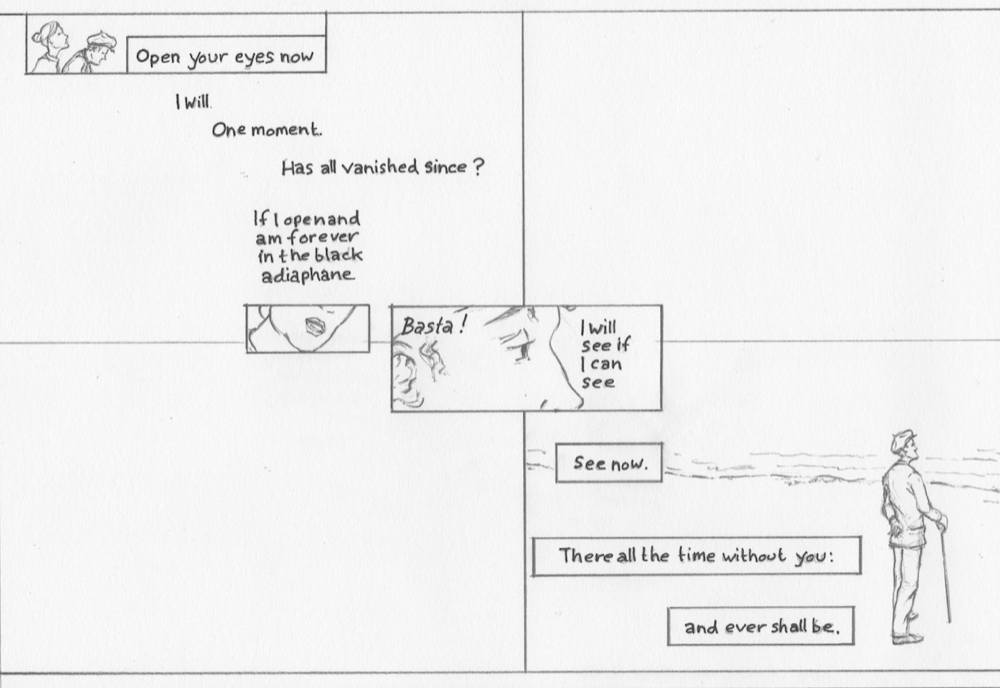 Open your eyes now
I will.
One moment.
Has all vanished since ?
If I open and
am forever
in the black
adiaphane
Basta !
I will
see if
I can
see
See now.
There all the time without you:
and ever shall be.